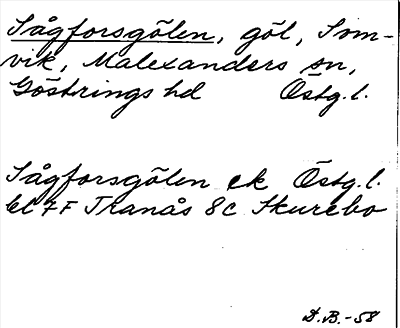 Sågforsgölen, göl, Som-
vik, Malexanders sn,
Göstrings hd Östg.l.
Sågforsgölen ek Östg.l.
bl 7F Tranås 8c Skurebo
D.B.-58